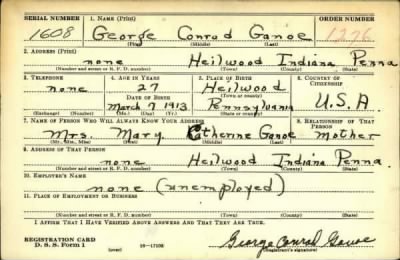 SERIAL NUMBER 1. NAME (Print) ORDER NUMBER
1608 George Conrad Ganoe 1276
(First) (Middle) (Last)
2. ADDRESS (Print)
none Heilwood Indiana Penna
(Number and street or R. F. D. number) (Town) (County) (State)
3. TELEPHONE 4. AGE IN YEARS 5. PLACE OF BIRTH 6. COUNTRY OF CITIZENSHIP
none 27 Heilwood
DATE OF BIRTH (Town or county)
March 7 1913 Pennsylvania U.S.A
(Exchange) (Number) (Mo.) (Day) (Yr.) (State or country)
7. NAME OF PERSON WHO WILL ALWAYS KNOW YOUR ADDRESS 8. RELATIONSHIP OF THAT PERSON
Mrs. Mary Catherine Ganoe mother
(Mr., Mrs., Miss) (First) (Middle) (Last)
9. ADDRESS OF THAT PERSON
none Heilwood Indiana Penna.
(Number and street or R. F. D. number) (Town) (County) (State)
10. EMPLOYER'S NAME
none (unemployed)
11. PLACE OF EMPLOYMENT OR BUSINESS
(Number and street or R. F. D. number) (Town) (County) (State)
I AFFIRM THAT I HAVE VERIFIED ABOVE ANSWERS AND THAT THEY ARE TRUE.
REGISTRATION CARD
D. S. S. Form 1 (over) 16-17105 George Conrad Ganoe
(Registrant's signature)